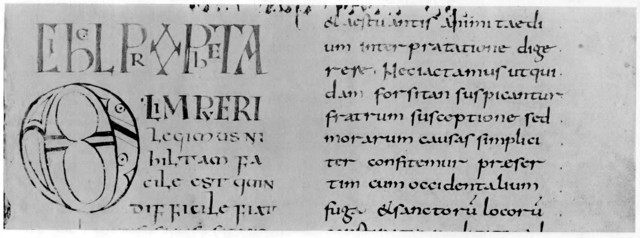 PROPHETA
OLIM PUERI
legimus ni
hil tam fa
cile est quin
difficile fiat
&aestuantis animi taedi
um interpratatione dige
rere. Neciactamus utqui
dam forsitan suspicantur
fratrum susceptione sed
morarum causas simplici
ter confitemur præser
tim cum occidentalium
fuga &sanctorū locorū